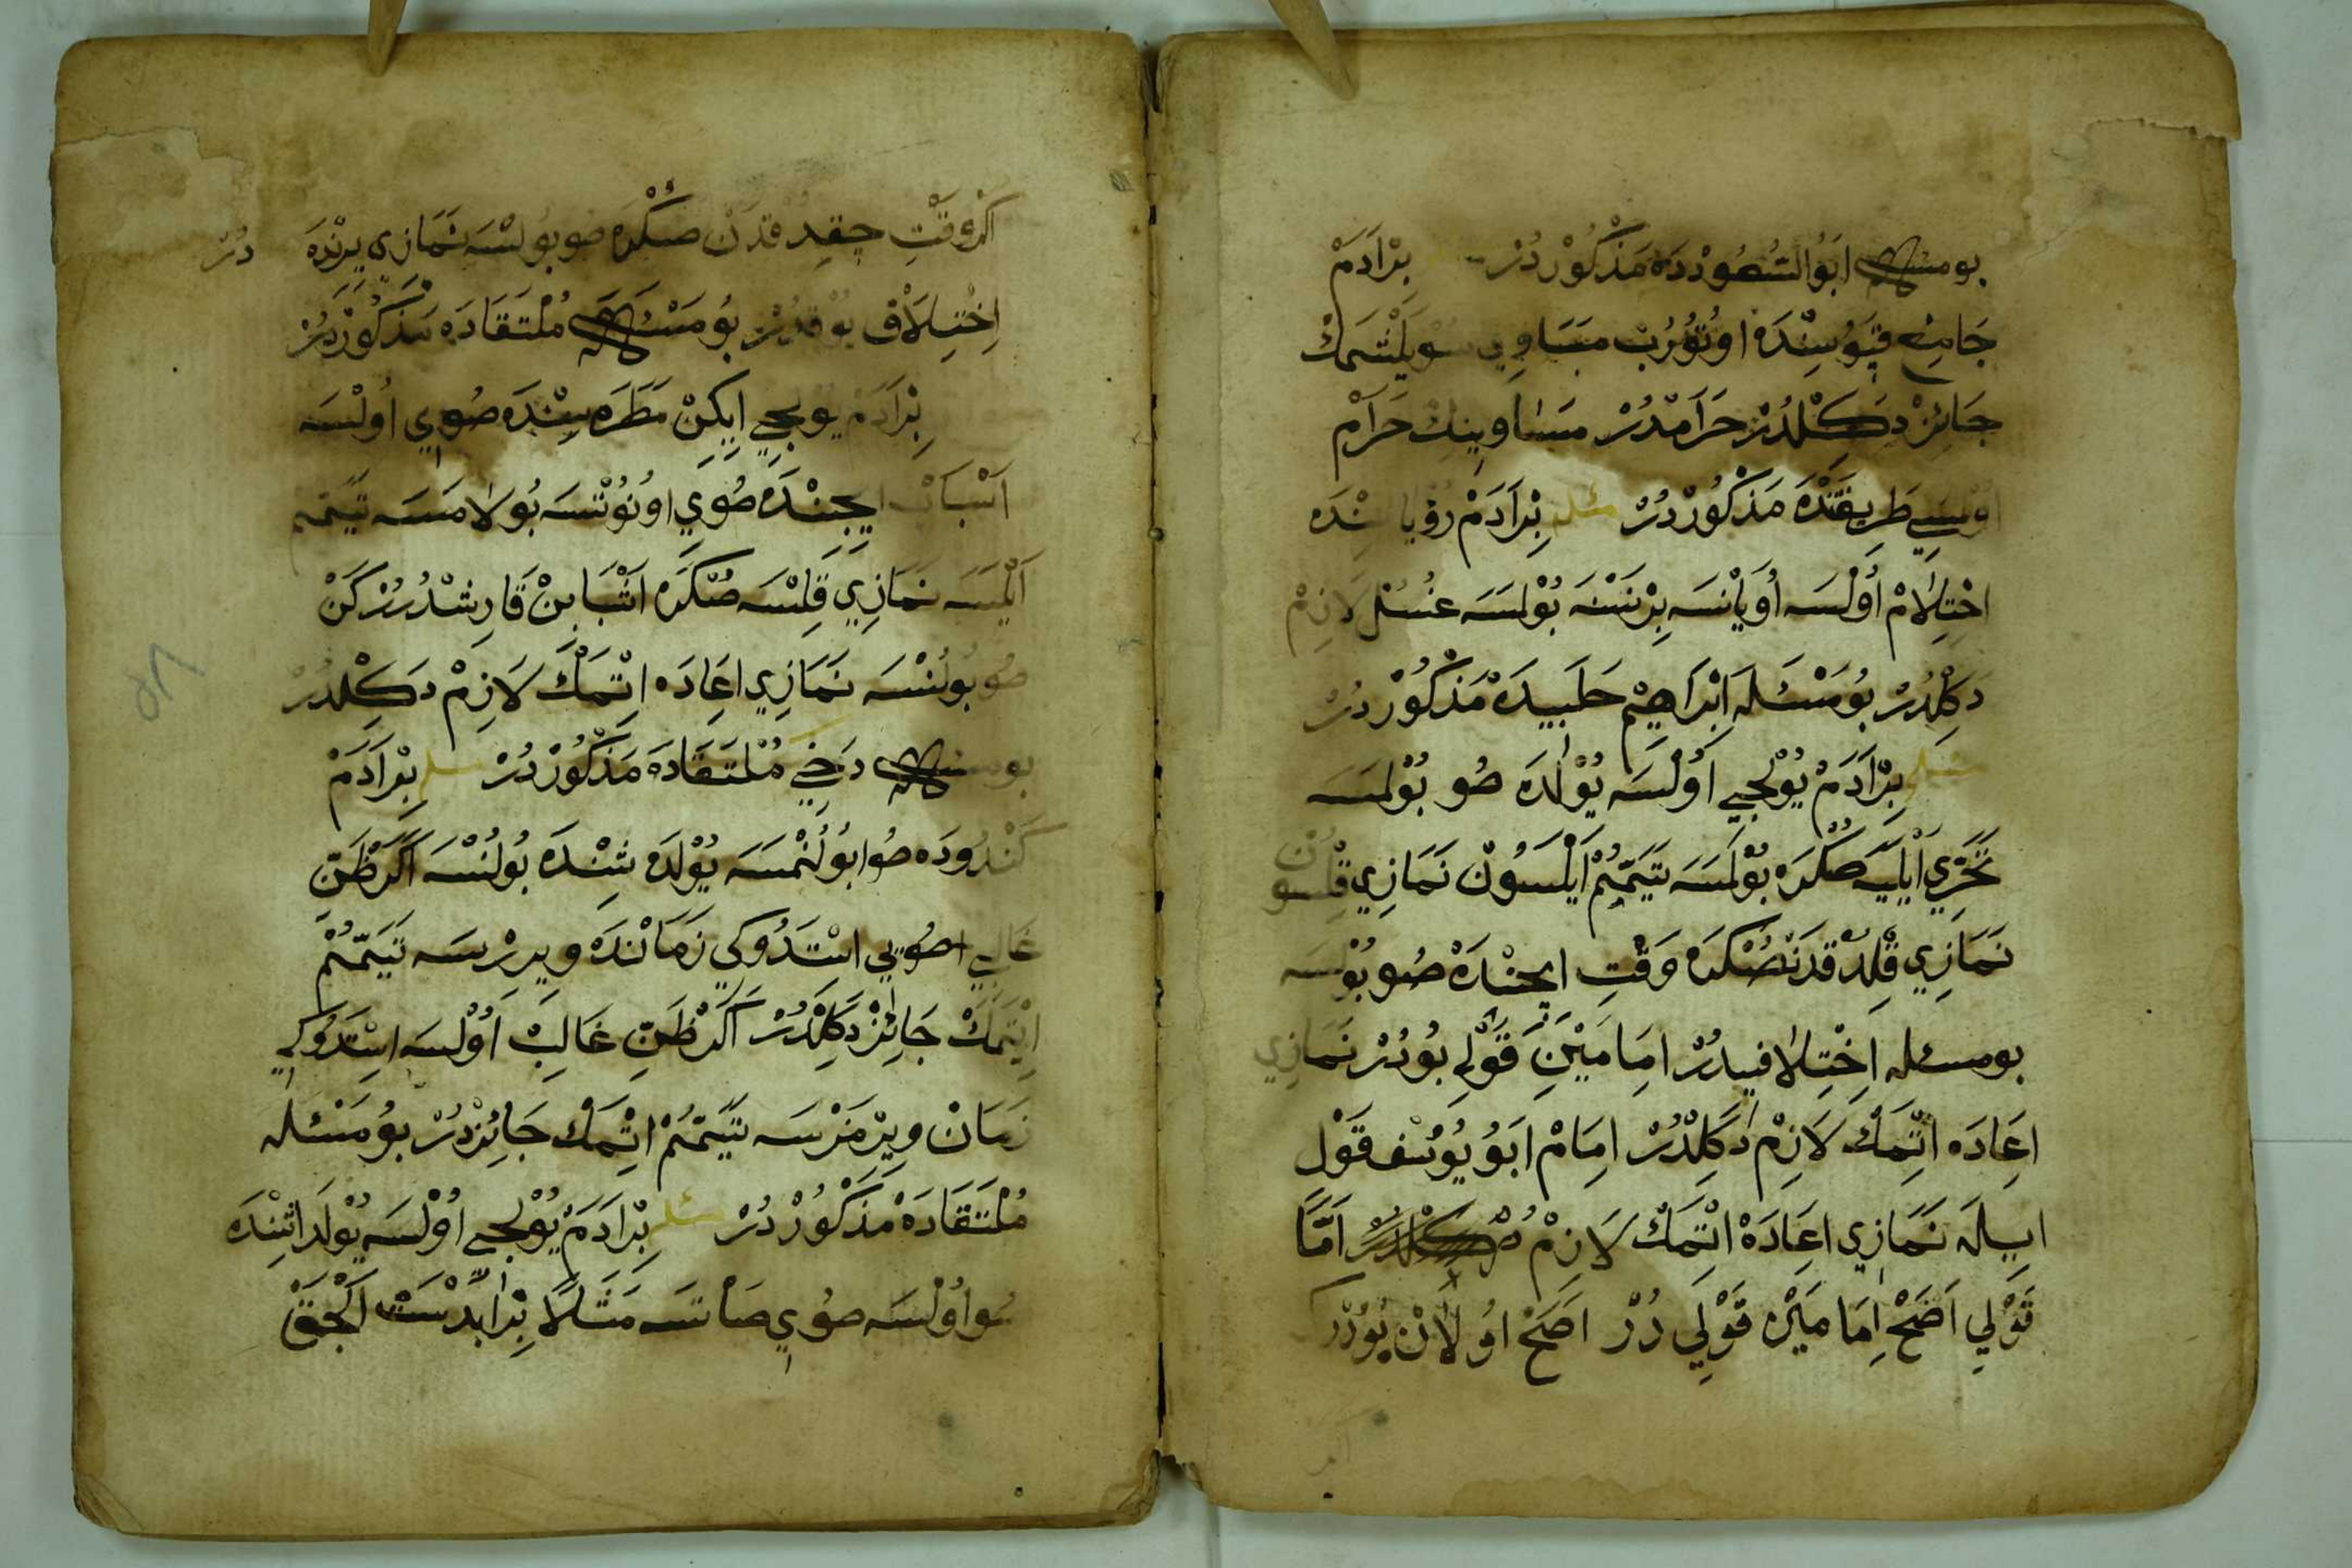 بومسئله ابَوُ السُّعُودْدَه مَذْكُورْدُرْ بِرْآدَمْ
جَامِعِ قَپُوسِنْدَه اوُتُورُبْ مَسَاوِي سُويْلَشْمَكْ
جَائِزْ دَكِلْدُرْ حَرَامْدُرْ مَسَاوِينِكْ حَرَامْ
اوُلمَسِي طَرِيقَتْدَه مَذْكُورْدُرْ مسئله بِرْآدَمْ رؤياسِنْدَه
اِحْتِلَامْ اُولْسَه اُويَانْسَه بِرْ نَسْنَه بُولْمَسَه غُسُلْ لَازِمْ
دَكِلْدُرْ بُومَسْئَلَه اِبْرَاهِيمْ حَلَبِيدَه مَذْكُورْدُرْ
مسئله بِرْآدَمْ يُوْلْجِي اُولْسَه يُوْلْدَه صُو بُوْلْمَسَه
تَحَرِّي اَيْلَيَه صُكْرَه بُوْلْمَسَه تَيَمُّمْ اَيْلَسُونْ نَمَازِي قِلْسُونْ
نَمَازِي قِلْدُقْدَنْصُكْرَه وَقْتِ اِيچِنْدَه صُو بُوْلْسَه
بومسئله اِخْتِلَافِيدُرْ اِمَامَيْنِ قَوْلِي بُودُرْ نَمَازِي
اِعَادَه اِتْمَكْ لَازِمْ دَكِلْدُرْ اِمَامْ اَبُو يُوسُف قَوْل
اِيلَه نَمَازِي اِعَادَه اِتْمَكْ لَازِمْ دُرْ اَمَّا
قَوْلِي اَصَحْ اِمَامَيْن قَوْلِي دُرْ اَصَحْ اوُلَانْ بُودُرْكِ
اَكَرْ وَقْتِ چِقِدُقْدَنْ صُكْرَه صُو بُولْسَه نَمَازِي يِرِنْدَه دُرْ
اِخْتِلَافْ يُوْقْدُرْ بُومَسْئَلَه مُلْتَقَادَه مَذْكُورْدُرْ
بِرْآدَمْ يُوْلْجِي اِيكِنْ مَطَرَه سِنْدَه صُويِ اُولْسَه
اَسْبَابْ اِيچِنْدَه صُويِ اوُنُوتْسَه بُولَامَسَه تَيَمُّمْ
اَيْلَسَه نَمَازِي قِلْسَه صُكْرَه اَسْبَابِنْ قَارِشْدُرُرْكَنْ
صُو بُولُنْسَه نَمَازِي اِعَادَه اِتْمَكْ لَازِمْ دَكِلْدُرْ
بومسئله دَخِي مُلْتَقَادَه مَذْكُورْدُرْ مسئله بِرْآدَمْ
كَنْدُودَه صُو بُولُنْمَسَه يُوْلْدَشِنْدَه بُولُنْسَه اَكَرْ ظَنِّ
غَالِبِي صُويِي اِسْتَدُوكِي زَمَانْدَه وِيرِرْسَه تَيَمُّمْ
اِيتْمَكْ جَائِزْ دَكِلْدُرْ اَكَرْ ظَنِّ غَالِبْ اُولْسَه اِسْتَدُوكِي
زَمَانْ وِيرْمَزْسَه تَيَمُّمْ اِتْمَكْ جَائِزْدُرْ بُومَسْئَلَه
مُلْتَقَادَه مَذْكُورْدُرْ مسئله بِرْآدَمْ يُوْلْجِي اُولْسَه يُوْلْدَاشِنْدَه
صُو اوُلْسَه صُويِ صَاتْسَه مَثَلًا بِرْ اَبْدَسْتْ اَلَجَقْ